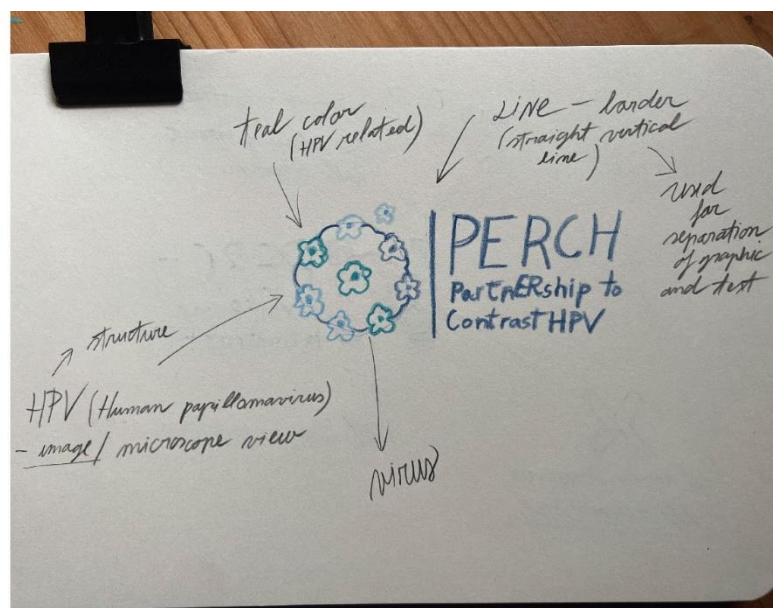 teal color
(HPV related)
LINE - border
(straight vertical
line)
used
for
separation
of graphic
and text
PERCH
PartnERship to
Contrast HPV
structure
HPV (Human papillomavirus)
- image / microscope view
virus